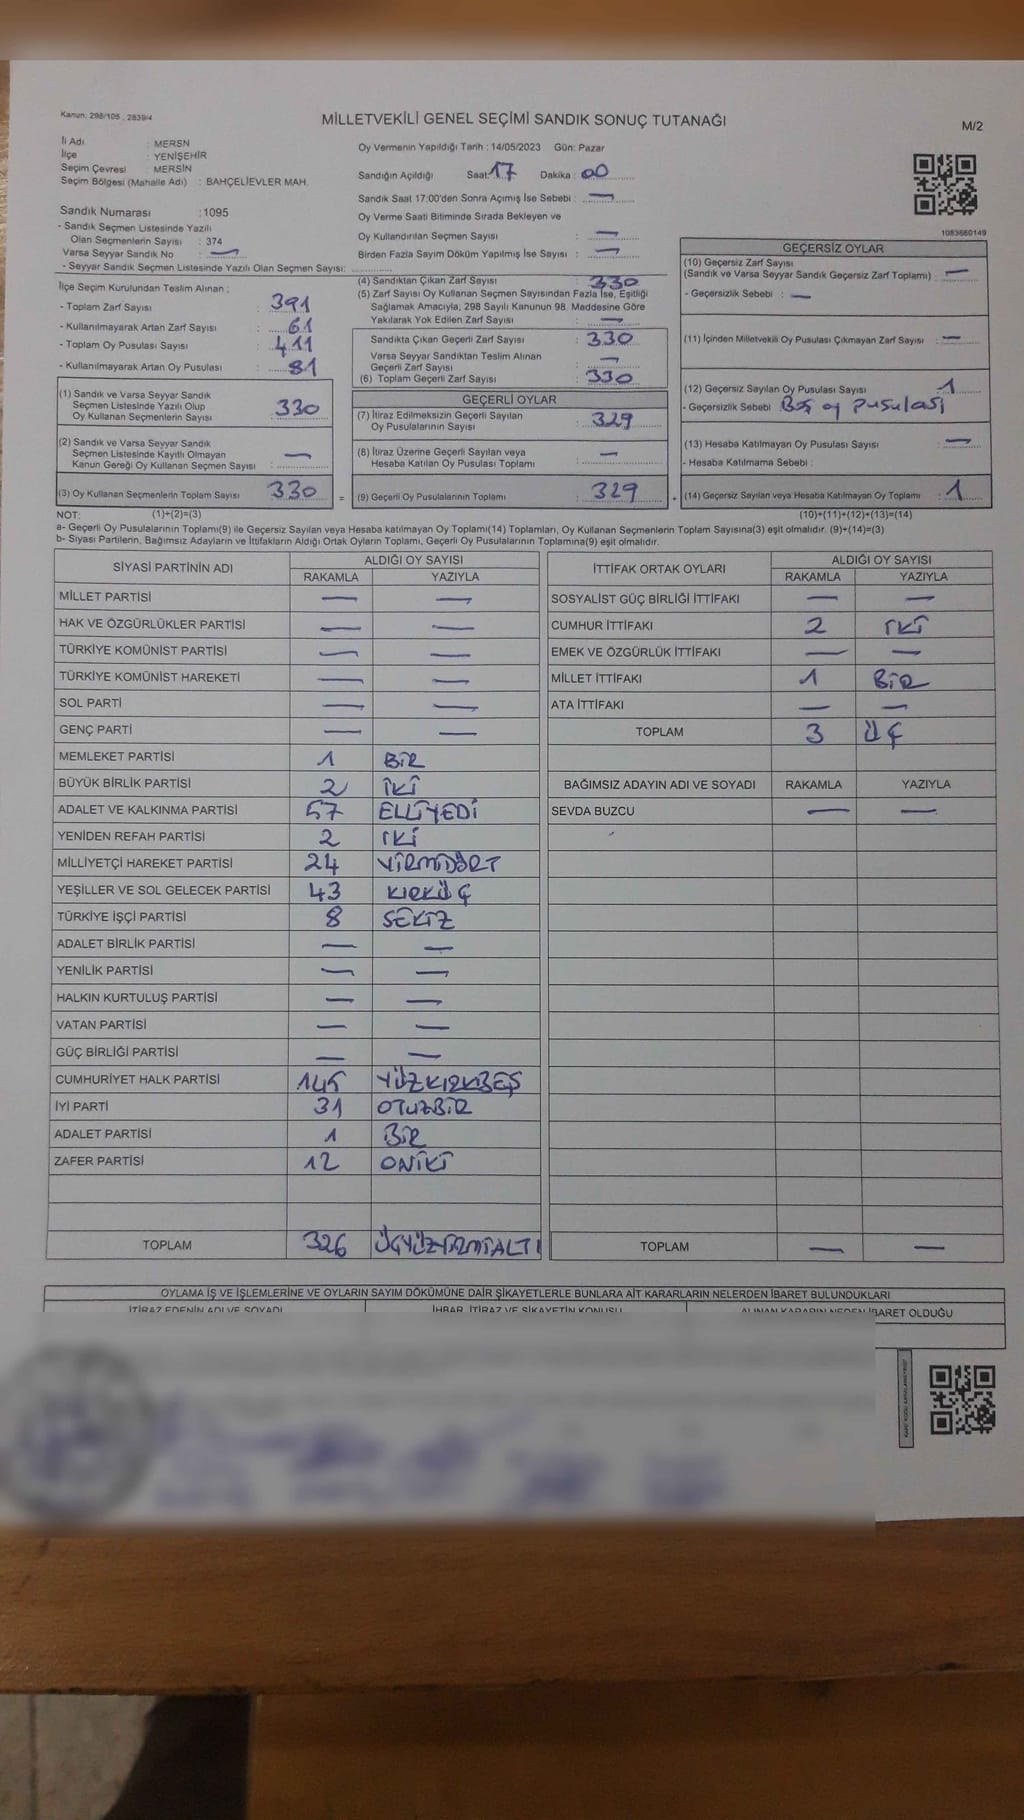 Kanun: 298/105 , 2839/4
MİLLETVEKİLİ GENEL SEÇİMİ SANDIK SONUÇ TUTANAĞI
M/2
İl Adı : MERSN
İlçe : YENİŞEHİR
Seçim Çevresi : MERSİN
Seçim Bölgesi (Mahalle Adı) : BAHÇELİEVLER MAH.
Sandık Numarası : 1095
- Sandık Seçmen Listesinde Yazılı
Olan Seçmenlerin Sayısı : 374
Varsa Seyyar Sandık No —
- Seyyar Sandık Seçmen Listesinde Yazılı Olan Seçmen Sayısı:
İlçe Seçim Kurulundan Teslim Alınan ;
- Toplam Zarf Sayısı : 391
- Kullanılmayarak Artan Zarf Sayısı : 61
- Toplam Oy Pusulası Sayısı : 411
- Kullanılmayarak Artan Oy Pusulası : 81
(1) Sandık ve Varsa Seyyar Sandık
Seçmen Listesinde Yazılı Olup
Oy Kullanan Seçmenlerin Sayısı : 330
(2) Sandık ve Varsa Seyyar Sandık
Seçmen Listesinde Kayıtlı Olmayan
Kanun Gereği Oy Kullanan Seçmen Sayısı : —
(3) Oy Kullanan Seçmenlerin Toplam Sayısı 330 =
Oy Vermenin Yapıldığı Tarih : 14/05/2023 Gün: Pazar
Sandığın Açıldığı Saat: 17 Dakika : 00
Sandık Saat 17:00'den Sonra Açımış İse Sebebi : —
Oy Verme Saati Bitiminde Sırada Bekleyen ve
Oy Kullandırılan Seçmen Sayısı : —
Birden Fazla Sayım Döküm Yapılmış İse Sayısı : —
(4) Sandıktan Çıkan Zarf Sayısı : 330
(5) Zarf Sayısı Oy Kullanan Seçmen Sayısından Fazla İse, Eşitliği
Sağlamak Amacıyla; 298 Sayılı Kanunun 98. Maddesine Göre
Yakılarak Yok Edilen Zarf Sayısı : —
Sandıkta Çıkan Geçerli Zarf Sayısı : 330
Varsa Seyyar Sandıktan Teslim Alınan
Geçerli Zarf Sayısı : —
(6) Toplam Geçerli Zarf Sayısı : 330
GEÇERLİ OYLAR
(7) İtiraz Edilmeksizin Geçerli Sayılan
Oy Pusulalarının Sayısı : 329
(8) İtiraz Üzerine Geçerli Sayılan veya
Hesaba Katılan Oy Pusulası Toplamı : —
(9) Geçerli Oy Pusulalarının Toplamı : 329 +
1083660149
GEÇERSİZ OYLAR
(10) Geçersiz Zarf Sayısı
(Sandık ve Varsa Seyyar Sandık Geçersiz Zarf Toplamı) : —
- Geçersizlik Sebebi : —
(11) İçinden Milletvekili Oy Pusulası Çıkmayan Zarf Sayısı : —
(12) Geçersiz Sayılan Oy Pusulası Sayısı : 1
- Geçersizlik Sebebi Boş oy pusulası
(13) Hesaba Katılmayan Oy Pusulası Sayısı : —
- Hesaba Katılmama Sebebi :
(14) Geçersiz Sayılan veya Hesaba Katılmayan Oy Toplamı : 1
NOT: (1)+(2)=(3) (10)+(11)+(12)+(13)=(14)
a- Geçerli Oy Pusulalarının Toplamı(9) ile Geçersiz Sayılan veya Hesaba katılmayan Oy Toplamı(14) Toplamları, Oy Kullanan Seçmenlerin Toplam Sayısına(3) eşit olmalıdır. (9)+(14)=(3)
b- Siyasi Partilerin, Bağımsız Adayların ve İttifakların Aldığı Ortak Oyların Toplamı, Geçerli Oy Pusulalarının Toplamına(9) eşit olmalıdır.
SİYASİ PARTİNİN ADI ALDIĞI OY SAYISI
RAKAMLA YAZIYLA
MİLLET PARTİSİ — —
HAK VE ÖZGÜRLÜKLER PARTİSİ — —
TÜRKİYE KOMÜNİST PARTİSİ — —
TÜRKİYE KOMÜNİST HAREKETİ — —
SOL PARTİ — —
GENÇ PARTİ — —
MEMLEKET PARTİSİ 1 BİR
BÜYÜK BİRLİK PARTİSİ 2 İKİ
ADALET VE KALKINMA PARTİSİ 57 ELLİYEDİ
YENİDEN REFAH PARTİSİ 2 İKİ
MİLLİYETÇİ HAREKET PARTİSİ 24 YİRMİDÖRT
YEŞİLLER VE SOL GELECEK PARTİSİ 43 KIRKÜÇ
TÜRKİYE İŞÇİ PARTİSİ 8 SEKİZ
ADALET BİRLİK PARTİSİ — —
YENİLİK PARTİSİ — —
HALKIN KURTULUŞ PARTİSİ — —
VATAN PARTİSİ — —
GÜÇ BİRLİĞİ PARTİSİ — —
CUMHURİYET HALK PARTİSİ 145 YÜZKIRKBEŞ
İYİ PARTİ 31 OTUZBİR
ADALET PARTİSİ 1 BİR
ZAFER PARTİSİ 12 ONİKİ
TOPLAM 326 ÜÇYÜZYİRMİALTI
İTTİFAK ORTAK OYLARI ALDIĞI OY SAYISI
RAKAMLA YAZIYLA
SOSYALİST GÜÇ BİRLİĞİ İTTİFAKI — —
CUMHUR İTTİFAKI 2 İKİ
EMEK VE ÖZGÜRLÜK İTTİFAKI — —
MİLLET İTTİFAKI 1 BİR
ATA İTTİFAKI — —
TOPLAM 3 ÜÇ
BAĞIMSIZ ADAYIN ADI VE SOYADI RAKAMLA YAZIYLA
SEVDA BUZCU — —
TOPLAM — —
OYLAMA İŞ VE İŞLEMLERİNE VE OYLARIN SAYIM DÖKÜMÜNE DAİR ŞİKAYETLERLE BUNLARA AİT KARARLARIN NELERDEN İBARET BULUNDUKLARI
İTİRAZ EDENİN ADI VE SOYADI İHBAR, İTİRAZ VE ŞİKAYETİN KONUSU ALINAN KARARIN NEDEN İBARET OLDUĞU